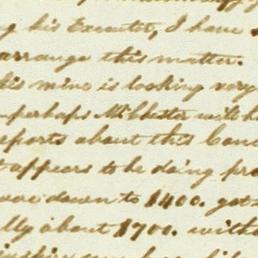 his Executor, I have
arrange this matter.
his mine is looking very
perhaps Mr Chester with h
reports about this Con
t appears to be doing pro
were down to 1400. got
lly about 1700. with